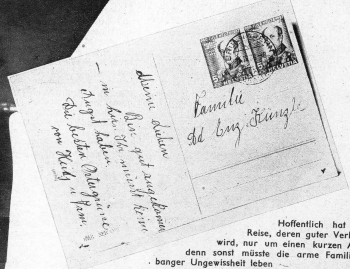 Meine Lieben
Bin gut angekommen
Ihr müsst keine
Angst haben
Die besten Ostergrüsse
von
Familie
Künzle
Hoffentlich hat
Reise, deren guter Verl
wird, nur um einen kurzen A
denn sonst müsste die arme Famili
banger Ungewissheit leben